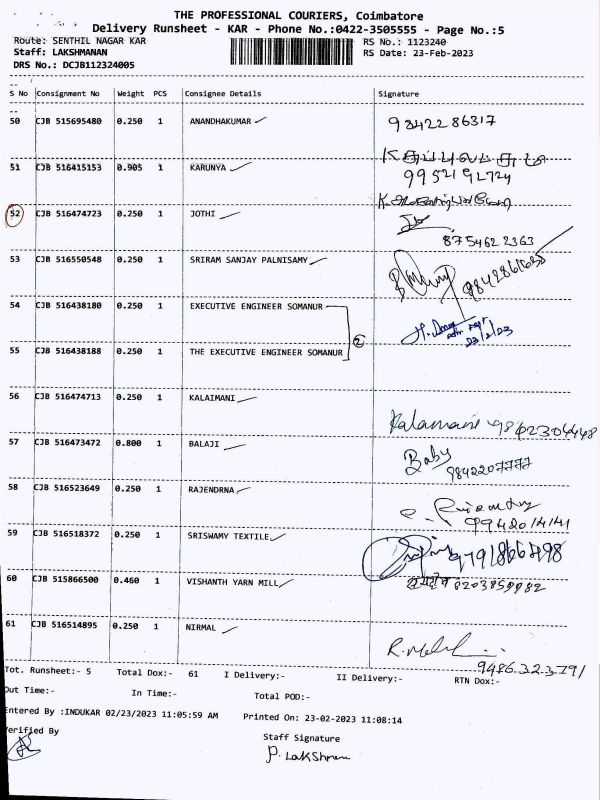 THE PROFESSIONAL COURIERS, Coimbatore
Delivery Runsheet - KAR - Phone No.:0422-3505555 - Page No.:5
Route: SENTHIL NAGAR KAR RS No.: 1123240
Staff: LAKSHMANAN RS Date: 23-Feb-2023
DRS No.: DCJB112324005
S No Consignment No Weight PCS Consignee Details Signature
50 CJB 515695480 0.250 1 ANANDHAKUMAR 98422 86317
51 CJB 516415153 0.905 1 KARUNYA
99521 92724
52 CJB 516474723 0.250 1 JOTHI
8754622363
53 CJB 516550548 0.250 1 SRIRAM SANJAY PALNISAMY
54 CJB 516438180 0.250 1 EXECUTIVE ENGINEER SOMANUR
2
55 CJB 516438188 0.250 1 THE EXECUTIVE ENGINEER SOMANUR
56 CJB 516474713 0.250 1 KALAIMANI
Kalamani 9842304448
57 CJB 516473472 0.800 1 BALAJI Baby
9842207777
58 CJB 516523649 0.250 1 RAJENDRNA
9942014141
59 CJB 516518372 0.250 1 SRISWAMY TEXTILE 9791866498
60 CJB 515866500 0.460 1 VISHANTH YARN MILL
61 CJB 516514895 0.250 1 NIRMAL
9486323791
Tot. Runsheet:- 5 Total Dox:- 61 I Delivery:- II Delivery:- RTN Dox:-
Out Time:- In Time:- Total POD:-
Entered By :INDUKAR 02/23/2023 11:05:59 AM Printed On: 23-02-2023 11:08:14
Verified By Staff Signature
P. Lakshman